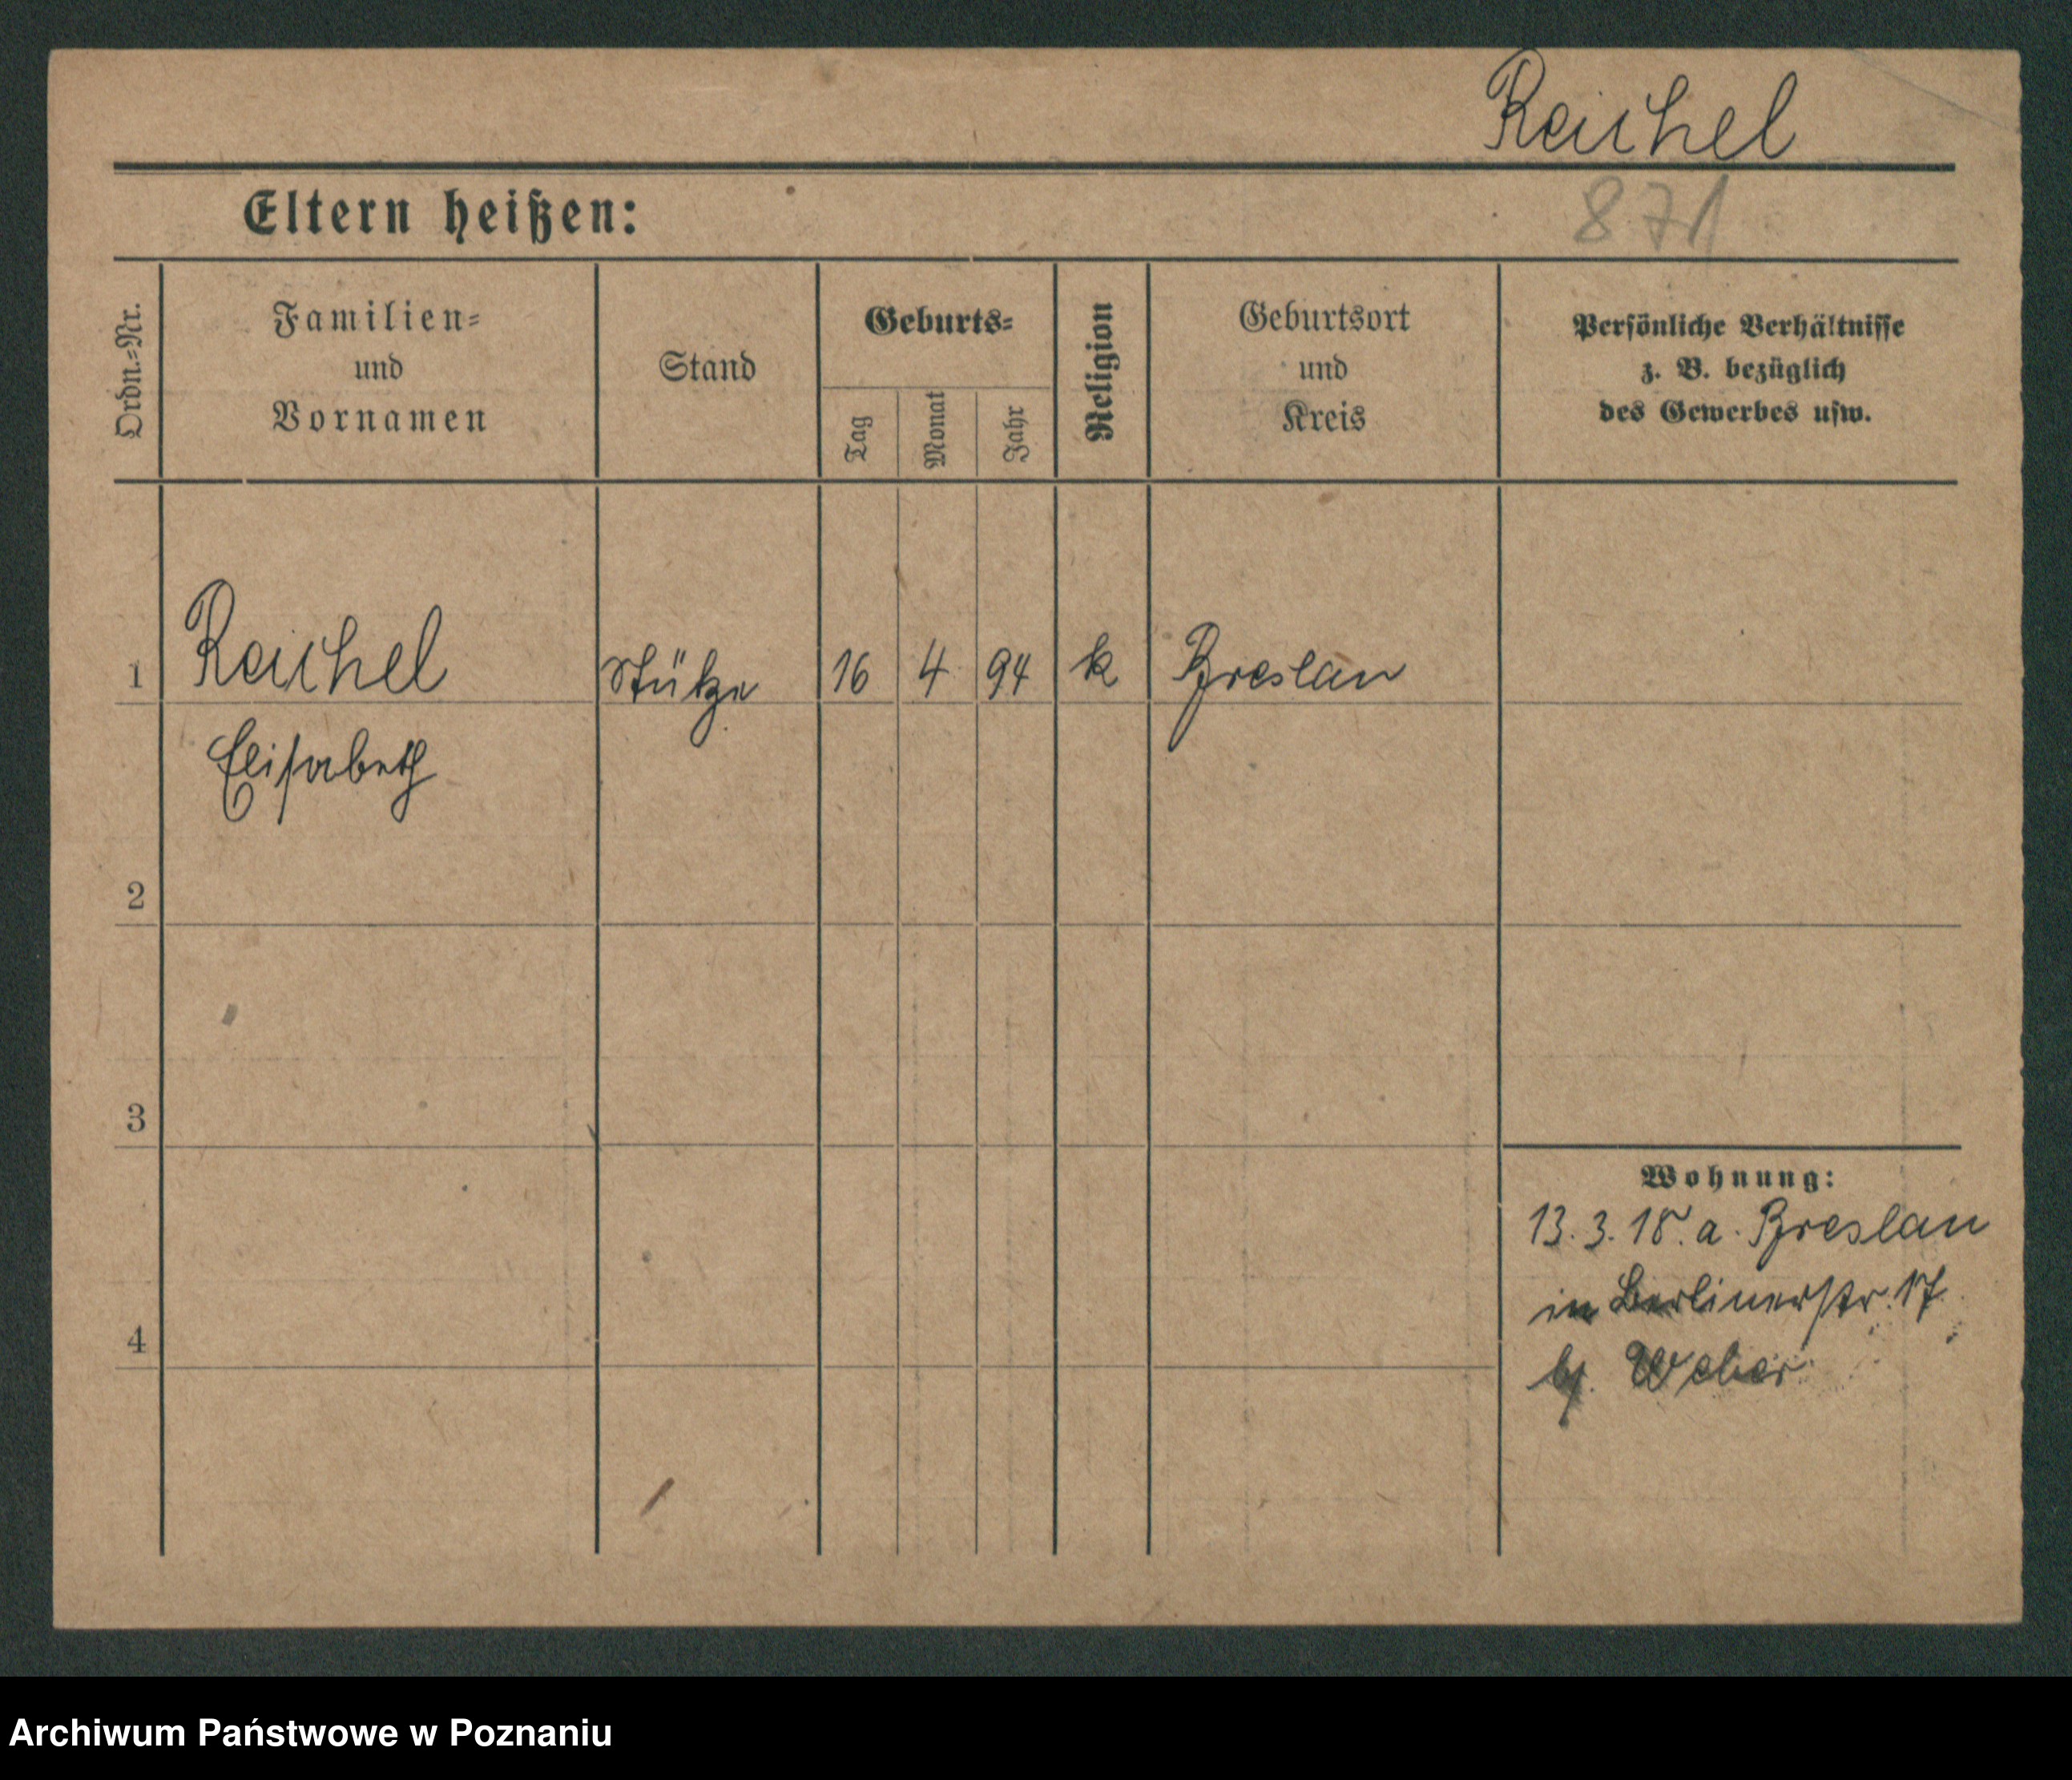 Reichel
Eltern heißen:
871
Ordn.=Nr.
Familien=
und
Vornamen
Stand
Geburts=
Tag
Monat
Jahr
Religion
Geburtsort
und
Kreis
Persönliche Verhältnisse
z. B. bezüglich
des Gewerbes usw.
1 Reichel Stütze 16 4 94 k Breslau
Elisabeth
2
3
Wohnung:
13. 3. 18. a. Breslau
in Berlinerstr. 17
4
b/. Weber
Archiwum Państwowe w Poznaniu